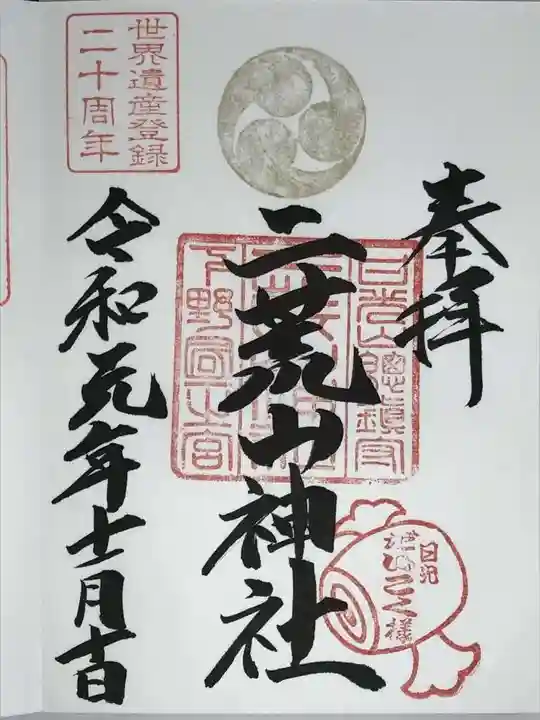 奉拝
二荒山神社
令和元年十一月十日
世界遺産登録
二十周年
日光山總鎮守
下野國一宮
日光
だいこく様